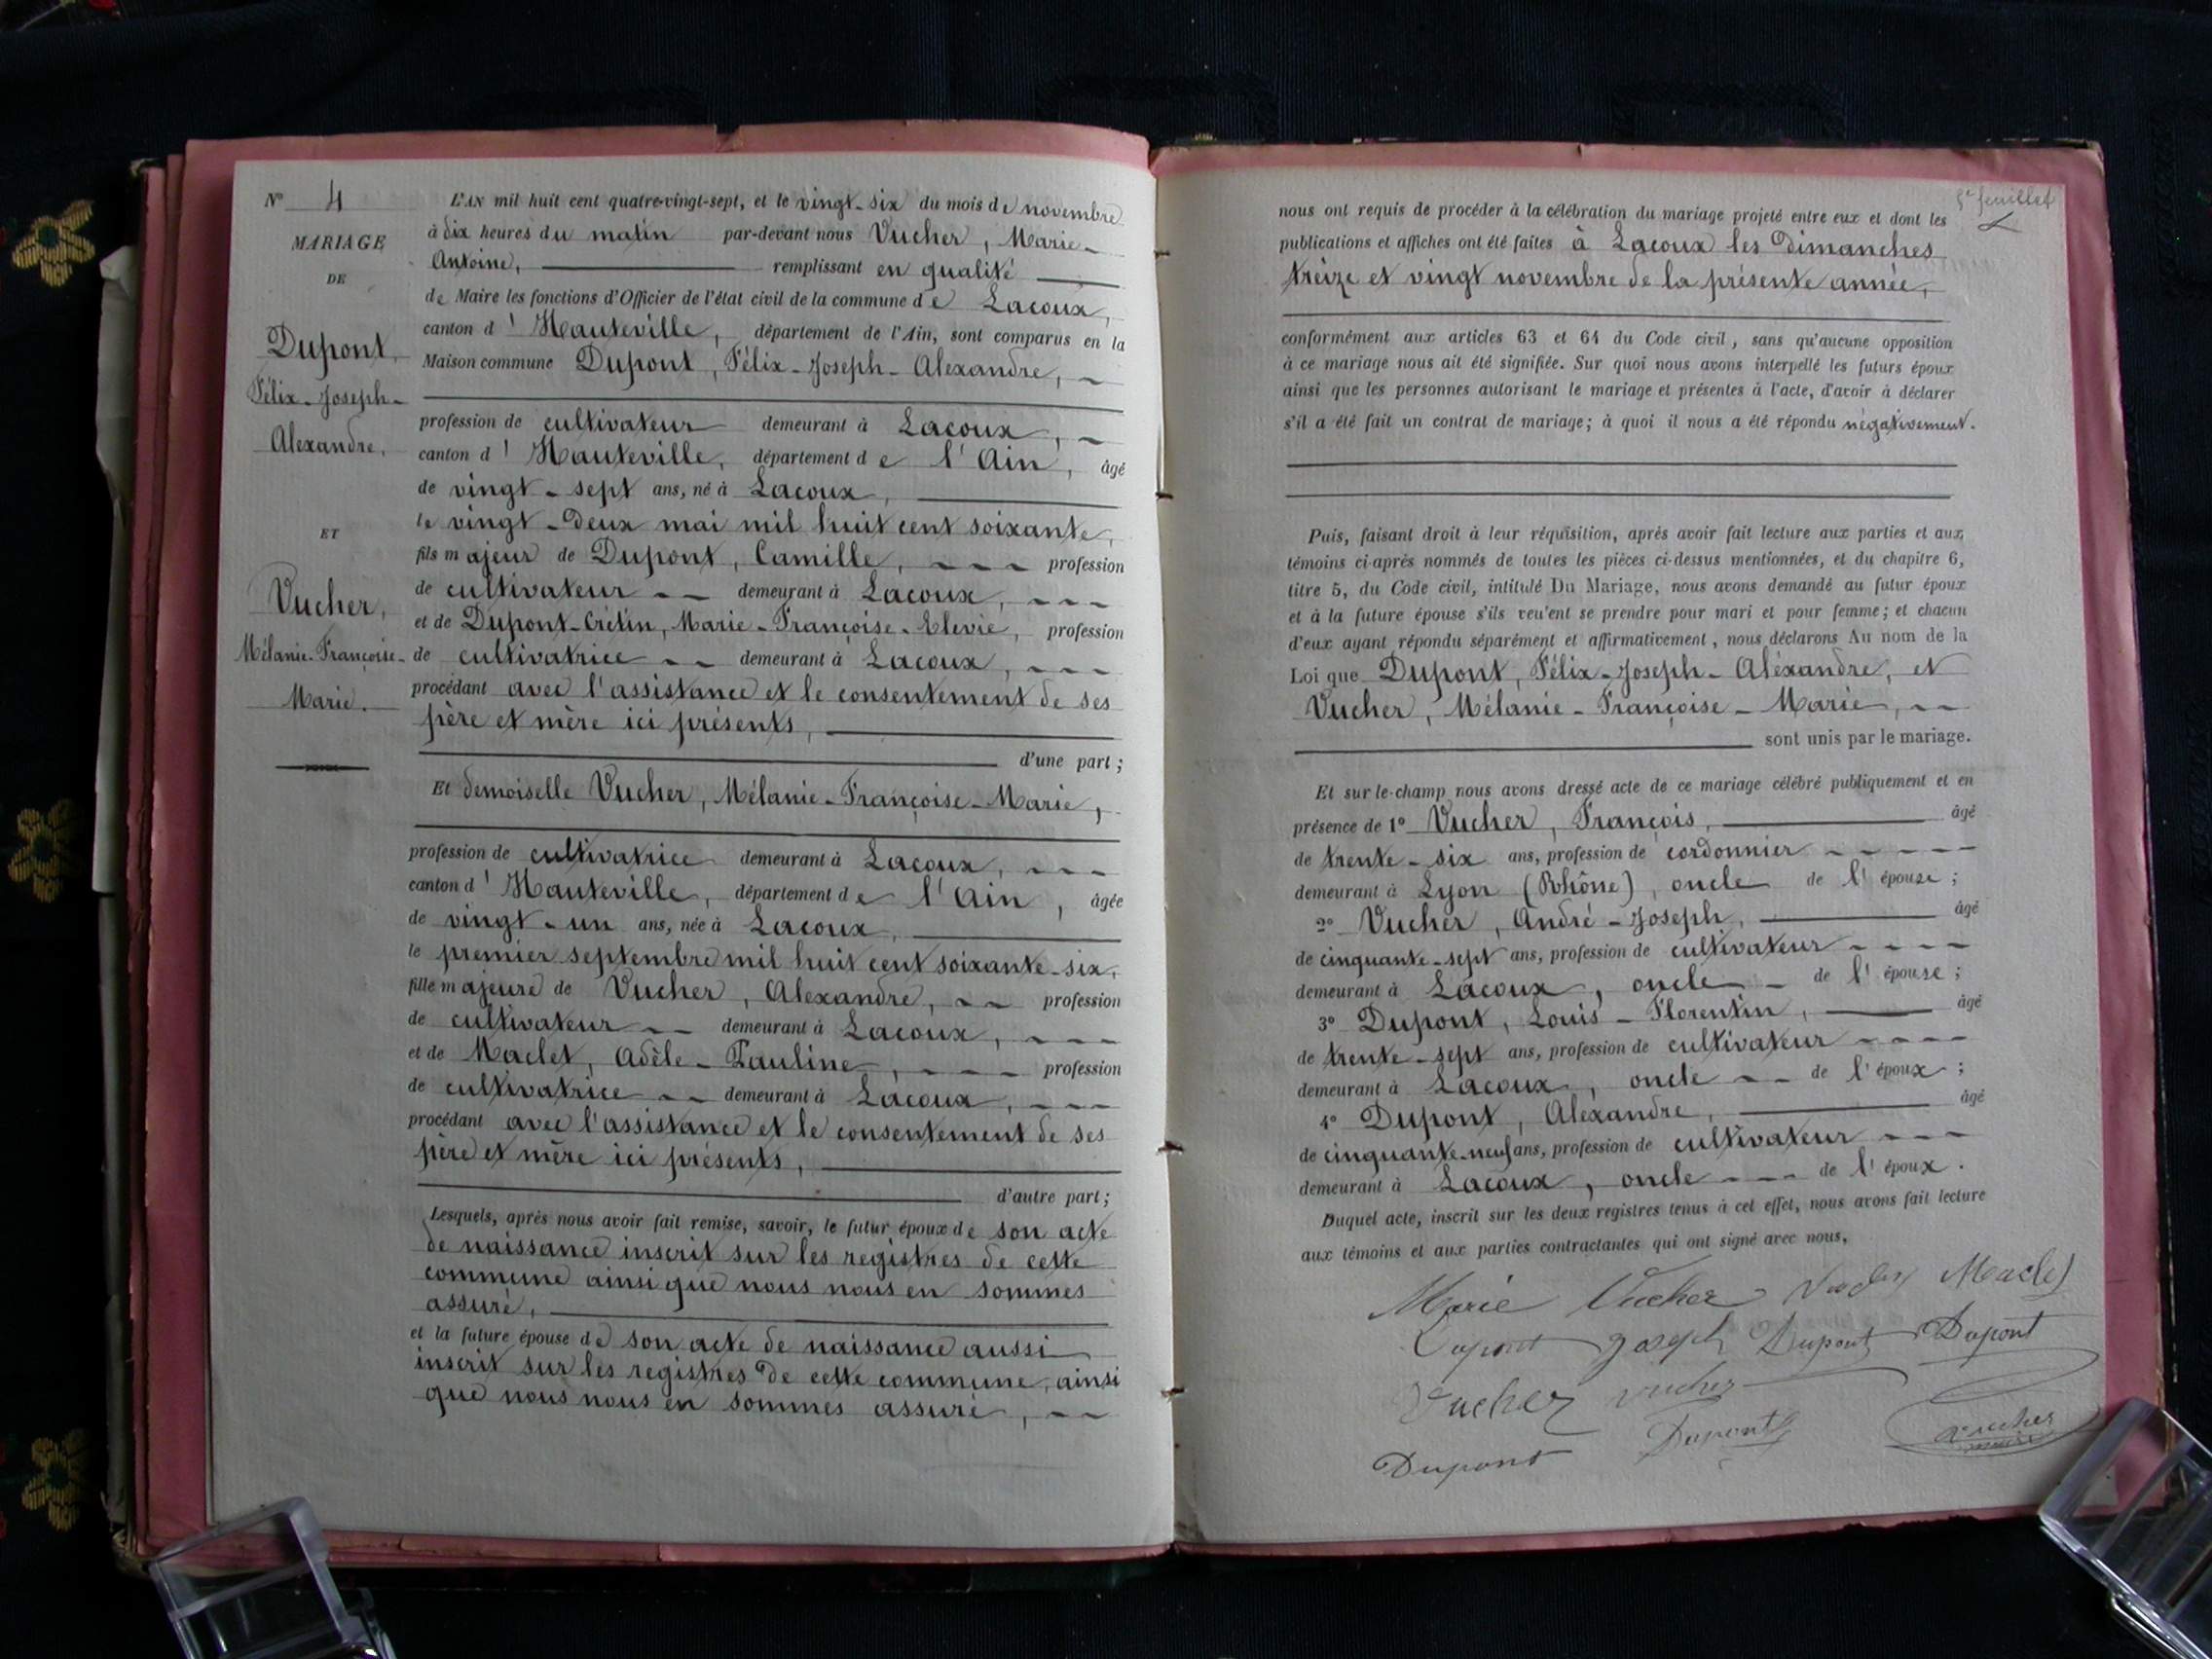 N° 4
MARIAGE
DE
Dupont,
Félix-Joseph-
Alexandre,
ET
Vucher,
Mélanie-Françoise-
Marie.
L'AN mil huit cent quatre-vingt-sept, et le vingt-six du mois de novembre
à dix heures du matin par-devant nous Vucher, Marie-
Antoine, remplissant en qualité
de Maire les fonctions d'Officier de l'état civil de la commune de Lacoux,
canton d'Hauteville, département de l'Ain, sont comparus en la
Maison commune Dupont, Félix-Joseph-Alexandre,
profession de cultivateur demeurant à Lacoux,
canton d'Hauteville, département de l'Ain, âgé
de vingt-sept ans, né à Lacoux,
le vingt-deux mai mil huit cent soixante,
fils majeur de Dupont, Camille, profession
de cultivateur demeurant à Lacoux,
et de Dupont-Crétin, Marie-Françoise-Elevie, profession
de cultivatrice demeurant à Lacoux,
procédant avec l'assistance et le consentement de ses
père et mère ici présents,
d'une part;
Et demoiselle Vucher, Mélanie-Françoise-Marie,
profession de cultivatrice demeurant à Lacoux,
canton d'Hauteville, département de l'Ain, âgée
de vingt-un ans, née à Lacoux,
le premier septembre mil huit cent soixante-six,
fille majeure de Vucher, Alexandre, profession
de cultivateur demeurant à Lacoux,
et de Maclet, Adèle-Pauline, profession
de cultivatrice demeurant à Lacoux,
procédant avec l'assistance et le consentement de ses
père et mère ici présents,
d'autre part;
Lesquels, après nous avoir fait remise, savoir, le futur époux de son acte
de naissance inscrit sur les registres de cette
commune ainsi que nous nous en sommes
assuré,
et la future épouse de son acte de naissance aussi
inscrit sur les registres de cette commune, ainsi
que nous nous en sommes assuré,
5e feuillet
nous ont requis de procéder à la célébration du mariage projeté entre eux et dont les
publications et affiches ont été faites à Lacoux les Dimanches
treize et vingt novembre de la présente année,
conformément aux articles 63 et 64 du Code civil, sans qu'aucune opposition
à ce mariage nous ait été signifiée. Sur quoi nous avons interpellé les futurs époux
ainsi que les personnes autorisant le mariage et présentes à l'acte, d'avoir à déclarer
s'il a été fait un contrat de mariage; à quoi il nous a été répondu négativement.
Puis, faisant droit à leur réquisition, après avoir fait lecture aux parties et aux
témoins ci-après nommés de toutes les pièces ci-dessus mentionnées, et du chapitre 6,
titre 5, du Code civil, intitulé Du Mariage, nous avons demandé au futur époux
et à la future épouse s'ils veu'ent se prendre pour mari et pour femme; et chacun
d'eux ayant répondu séparément et affirmativement, nous déclarons Au nom de la
Loi que Dupont, Félix-Joseph-Aléxandre, et
Vucher, Mélanie-Françoise-Marie,
sont unis par le mariage.
Et sur-le-champ nous avons dressé acte de ce mariage célébré publiquement et en
présence de 1° Vucher, François, âgé
de trente-six ans, profession de cordonnier
demeurant à Lyon (Rhône), oncle de l'épouse;
2° Vucher, André-Joseph, âgé
de cinquante-sept ans, profession de cultivateur
demeurant à Lacoux, oncle de l'épouse;
3° Dupont, Louis-Florentin, âgé
de trente-sept ans, profession de cultivateur
demeurant à Lacoux, oncle de l'époux;
4° Dupont, Alexandre, âgé
de cinquante-neuf ans, profession de cultivateur
demeurant à Lacoux, oncle de l'époux.
Duquel acte, inscrit sur les deux registres tenus à cet effet, nous avons fait lecture
aux témoins et aux parties contractantes qui ont signé avec nous,
Marie Vucher Maclet
Dupont Joseph Dupont Dupont
Vucher Vucher
Dupont Dupont Vucher
maire